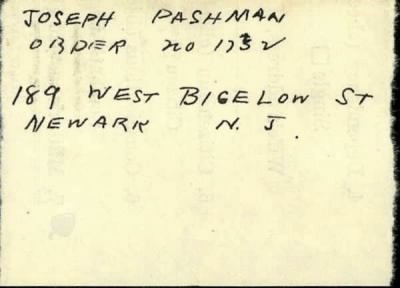 JOSEPH PASHMAN
ORDER no 1732
189 WEST BIGELOW ST
NEWARK N. J.